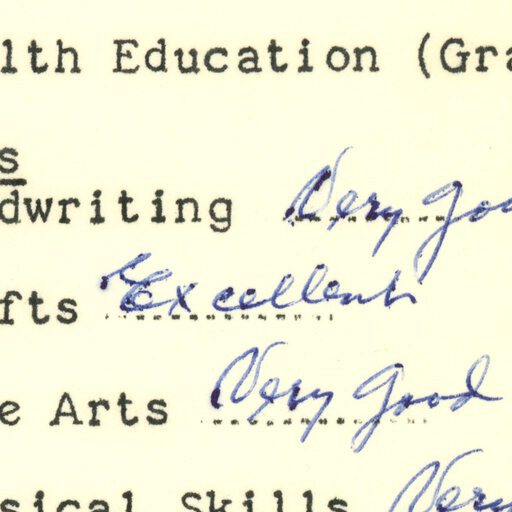 lth Education (Gra
s
dwriting Very goo
fts Excellent
e Arts Very Good
sical Skills Very